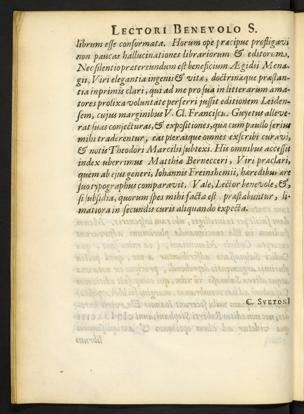 LECTORI BENEVOLO S.
librum esse conformata. Horum ope præcipue profligavi
non paucas hallucinationes librariorum & editorum.
Nec silentio prætereundum est beneficium Ægidii Menagii,
Viri elegantia ingenii & vitæ, doctrinæque præstantia
inprimis clari, qui ad me pro sua in litterarum amatores
prolixa voluntate perferri jussit editionem Leidensem,
cujus marginibus V. Cl. Franciscus Guyetus alleverat
suas conjecturas, & expositiones, quæ cum paullo serius
mihi traderentur, eas pleræque omnes exscribi curavi,
& notis Theodori Marcilii subtexi. His omnibus accessit
index uberrimus Matthiæ Berneccerii, Viri præclari,
quem ab ejus generi, Iohannis Freinshemii, hæredibus ære
suo typographus comparavit. Vale, Lector benevole, &,
si subsidia, quorum spes mihi facta est præstabuntur, limatiora
in secundis curis aliquando expecta.
C. SUETONI